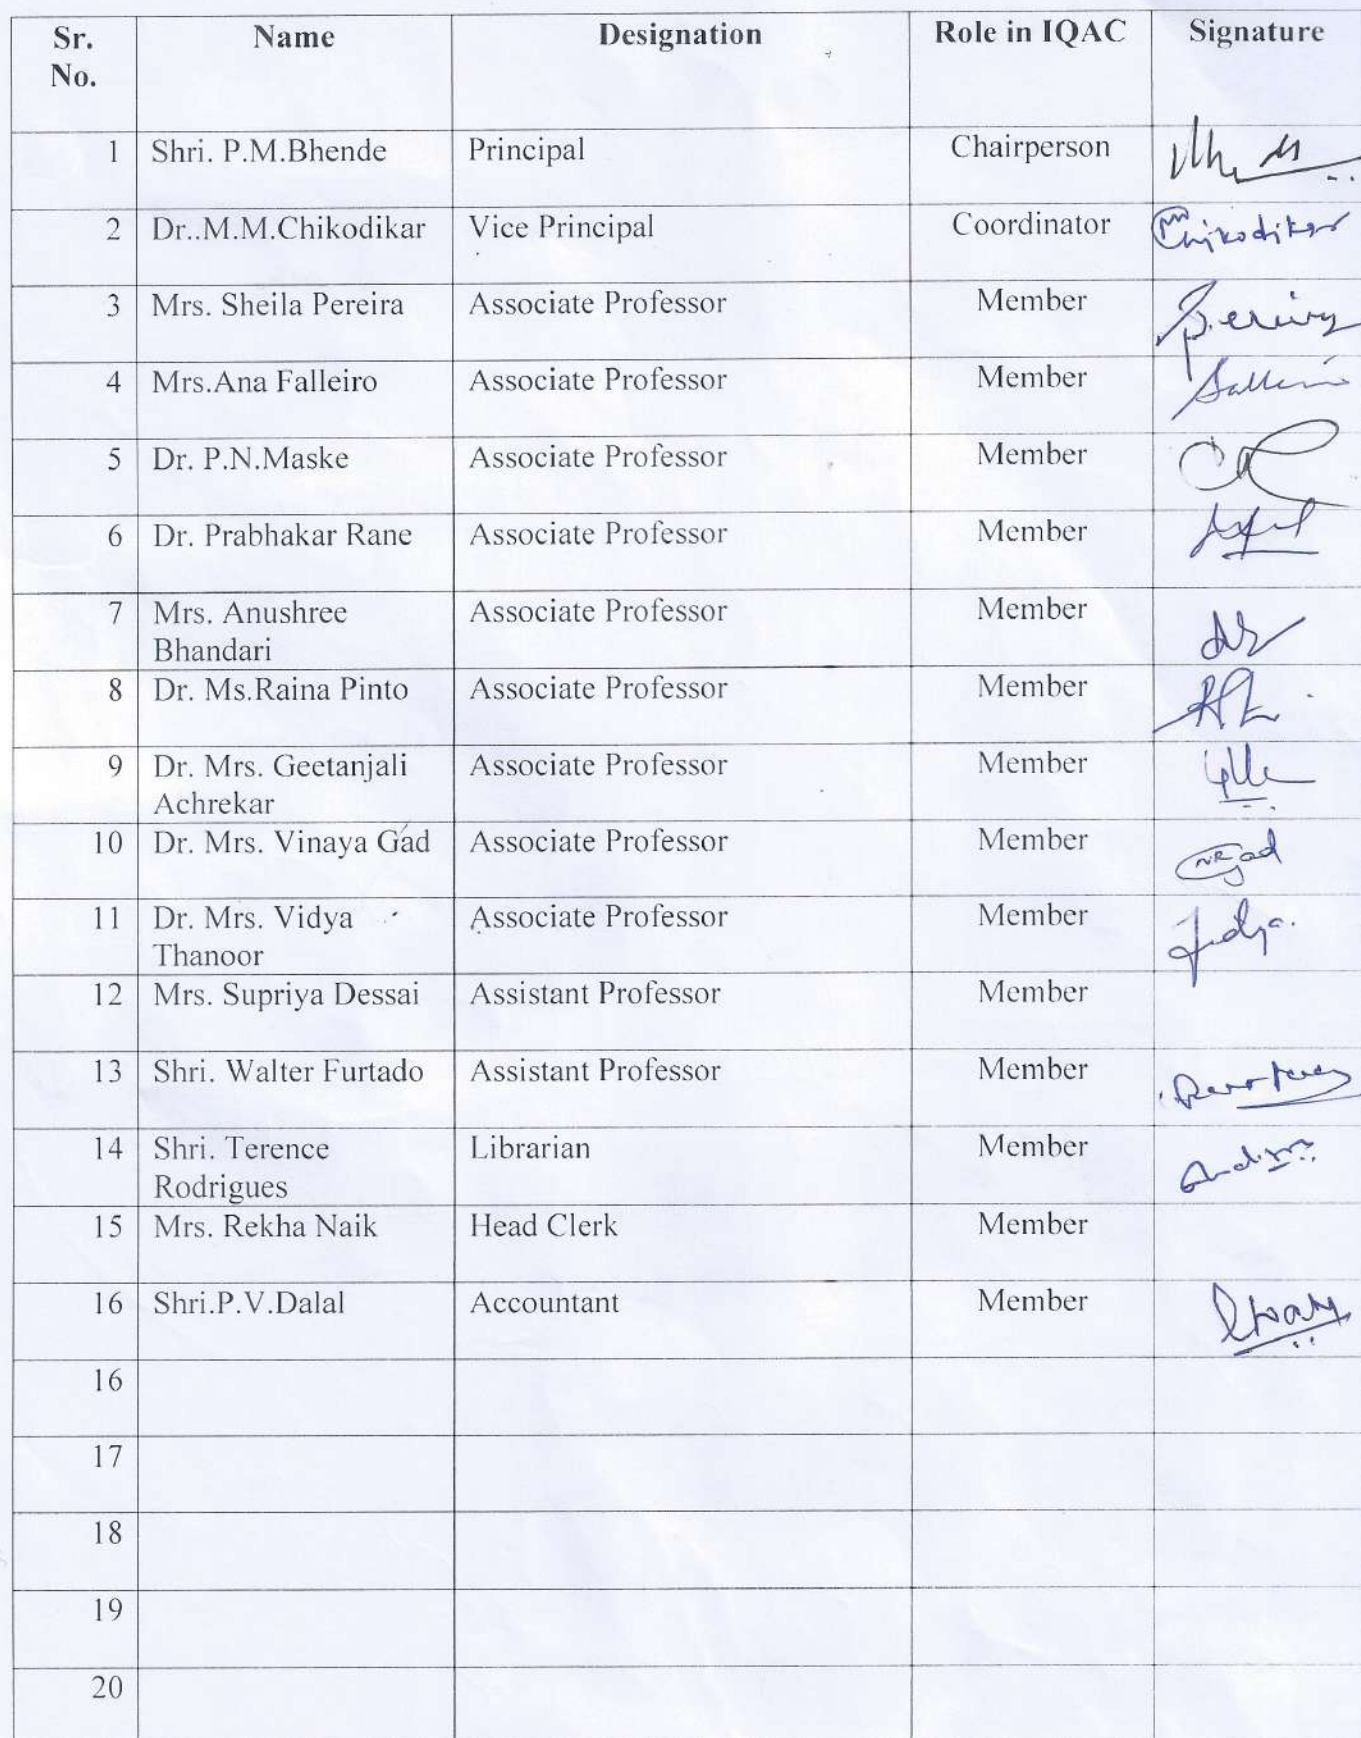 Sr. No. Name Designation Role in IQAC Signature
1 Shri. P.M.Bhende Principal Chairperson
2 Dr..M.M.Chikodikar Vice Principal Coordinator Chikodikar
3 Mrs. Sheila Pereira Associate Professor Member
4 Mrs.Ana Falleiro Associate Professor Member
5 Dr. P.N.Maske Associate Professor Member
6 Dr. Prabhakar Rane Associate Professor Member
7 Mrs. Anushree Associate Professor Member
Bhandari
8 Dr. Ms.Raina Pinto Associate Professor Member
9 Dr. Mrs. Geetanjali Associate Professor Member
Achrekar
10 Dr. Mrs. Vinaya Gad Associate Professor Member
11 Dr. Mrs. Vidya Associate Professor Member
Thanoor
12 Mrs. Supriya Dessai Assistant Professor Member
13 Shri. Walter Furtado Assistant Professor Member
14 Shri. Terence Librarian Member
Rodrigues
15 Mrs. Rekha Naik Head Clerk Member
16 Shri.P.V.Dalal Accountant Member
16
17
18
19
20